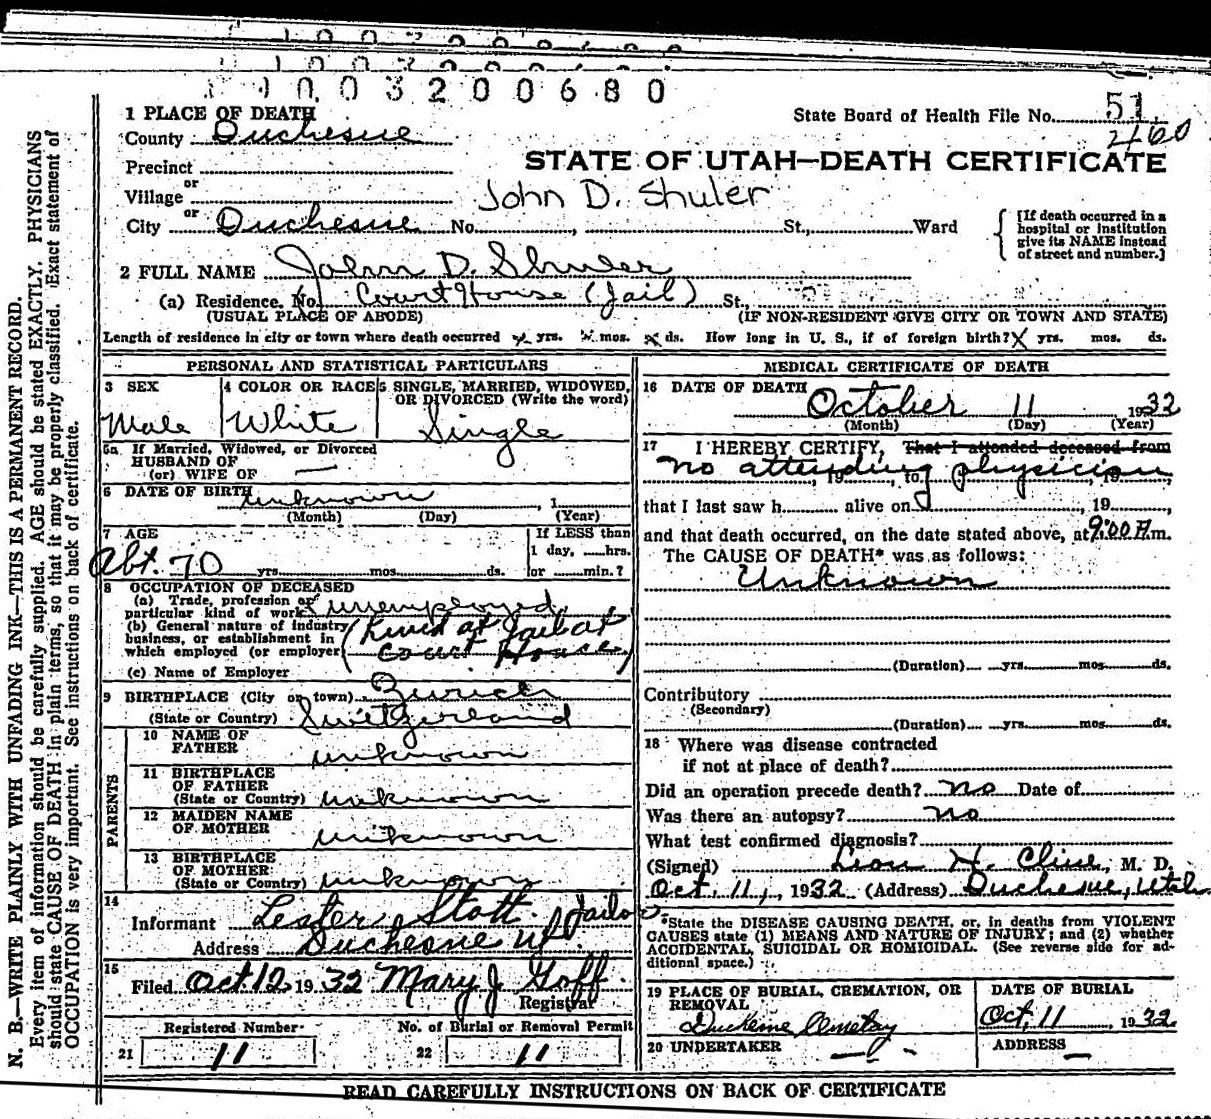 1003200680
1 PLACE OF DEATH
State Board of Health File No. 51
2460
County Duchesne
STATE OF UTAH—DEATH CERTIFICATE
Precinct
or
Village
John D. Shuler
or
City Duchesne No. , St., Ward
[If death occurred in a
hospital or institution
give its NAME instead
of street and number.]
2 FULL NAME John D. Shuler
(a) Residence. No. Court House (Jail) St.,
(USUAL PLACE OF ABODE) (IF NON-RESIDENT GIVE CITY OR TOWN AND STATE)
Length of residence in city or town where death occurred x yrs. x mos. x ds. How long in U. S., if of foreign birth? X yrs. mos. ds.
PERSONAL AND STATISTICAL PARTICULARS
3 SEX
Male
4 COLOR OR RACE
White
5 SINGLE, MARRIED, WIDOWED,
OR DIVORCED (Write the word)
Single
5a If Married, Widowed, or Divorced
HUSBAND OF
(or) WIFE OF —
6 DATE OF BIRTH unknown , 1
(Month) (Day) (Year)
7 AGE
Abt. 70 yrs. mos. ds.
If LESS than
1 day, hrs.
or min.?
8 OCCUPATION OF DECEASED
(a) Trade, profession or
particular kind of work unemployed
(b) General nature of industry
business, or establishment in
which employed (or employer)
(Lived at Jail at
Court House)
(c) Name of Employer
9 BIRTHPLACE (City or town) Zurich
(State or Country) Switzerland
PARENTS
10 NAME OF
FATHER unknown
11 BIRTHPLACE
OF FATHER
(State or Country) unknown
12 MAIDEN NAME
OF MOTHER unknown
13 BIRTHPLACE
OF MOTHER
(State or Country) unknown
14
Informant Lester Stott. Jailor
Address Duchesne Ut
15
Filed Oct 12 1932 Mary J Goff
Registrar
Registered Number
21 11
No. of Burial or Removal Permit
22 11
MEDICAL CERTIFICATE OF DEATH
16 DATE OF DEATH
October 11, 1932
(Month) (Day) (Year)
17 I HEREBY CERTIFY, That I attended deceased from
no attending physician
, 19 , to , 19 ,
that I last saw h alive on , 19 ,
and that death occurred, on the date stated above, at 9:00 P.m.
The CAUSE OF DEATH* was as follows:
Unknown
(Duration) yrs. mos. ds.
Contributory
(Secondary)
(Duration) yrs. mos. ds.
18 Where was disease contracted
if not at place of death?
Did an operation precede death? no Date of
Was there an autopsy? no
What test confirmed diagnosis?
(Signed) Leon H. Cline, M. D.
Oct. 11, 1932 (Address) Duchesne, Utah
*State the DISEASE CAUSING DEATH, or, in deaths from VIOLENT
CAUSES state (1) MEANS AND NATURE OF INJURY; and (2) whether
ACCIDENTAL, SUICIDAL OR HOMICIDAL. (See reverse side for ad-
ditional space.)
19 PLACE OF BURIAL, CREMATION, OR
REMOVAL
Duchesne Cemetery
DATE OF BURIAL
Oct, 11, 1932
20 UNDERTAKER —
ADDRESS —
READ CAREFULLY INSTRUCTIONS ON BACK OF CERTIFICATE
N. B.—WRITE PLAINLY WITH UNFADING INK—THIS IS A PERMANENT RECORD.
Every item of information should be carefully supplied. AGE should be stated EXACTLY. PHYSICIANS
should state CAUSE OF DEATH in plain terms, so that it may be properly classified. Exact statement of
OCCUPATION is very important. See instructions on back of certificate.